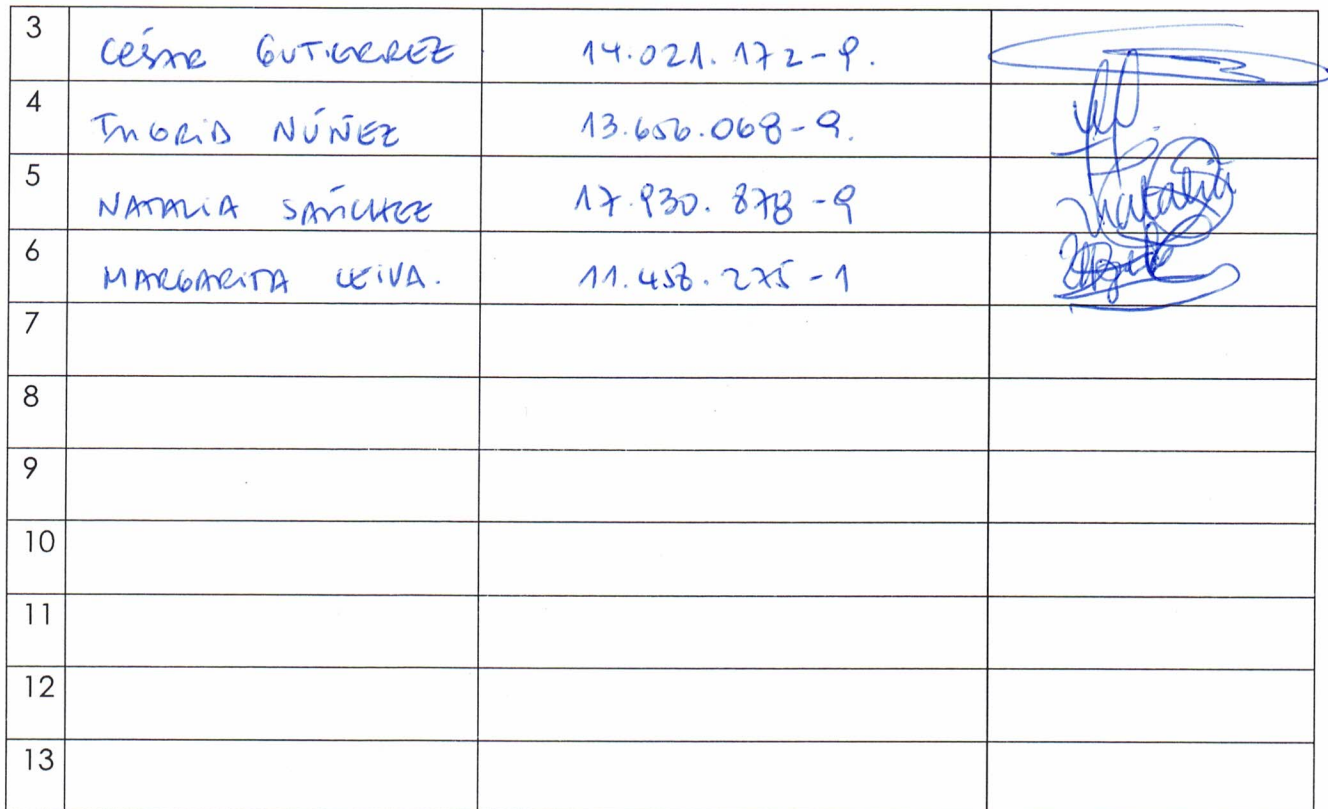 3 CÉSAR GUTIERREZ 14.021.172-9.
4 INGRID NÚÑEZ 13.656.068-9.
5 NATALIA SÁNCHEZ 17.930.878-9 Natalia
6 MARGARITA LEIVA. 11.458.275-1
7
8
9
10
11
12
13